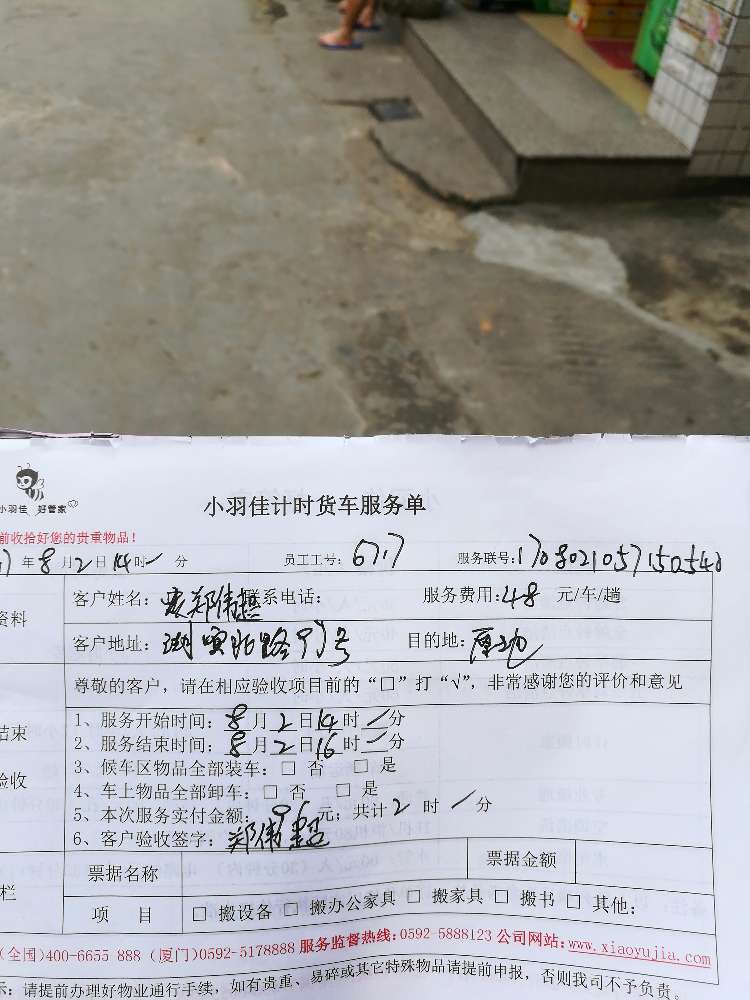 小羽佳 好管家
小羽佳计时货车服务单
前收拾好您的贵重物品！
年8月2日14时 分 员工工号：6717 服务联号：170802105715054
资料 客户姓名：郑伟 联系电话： 服务费用：48 元/车/趟
客户地址： 北路 号 目的地：
尊敬的客户，请在相应验收项目前的“口”打“√”，非常感谢您的评价和意见
结束
验收
1、服务开始时间：8月2日14时 分
2、服务结束时间：8月2日16时 分
3、候车区物品全部装车：□ 否 □ 是
4、车上物品全部卸车：□ 否 □ 是
5、本次服务实付金额：96元；共计2 时 分
6、客户验收签字：郑伟
栏 票据名称 票据金额
项 目 □ 搬设备 □ 搬办公家具 □ 搬家具 □ 搬书 □ 其他：
(全国)400-6655 888 (厦门)0592-5178888 服务监督热线：0592-5888123 公司网站：www.xiaoyujia.com
示：请提前办理好物业通行手续，如有贵重、易碎或其它特殊物品请提前申报，否则我司不予负责。